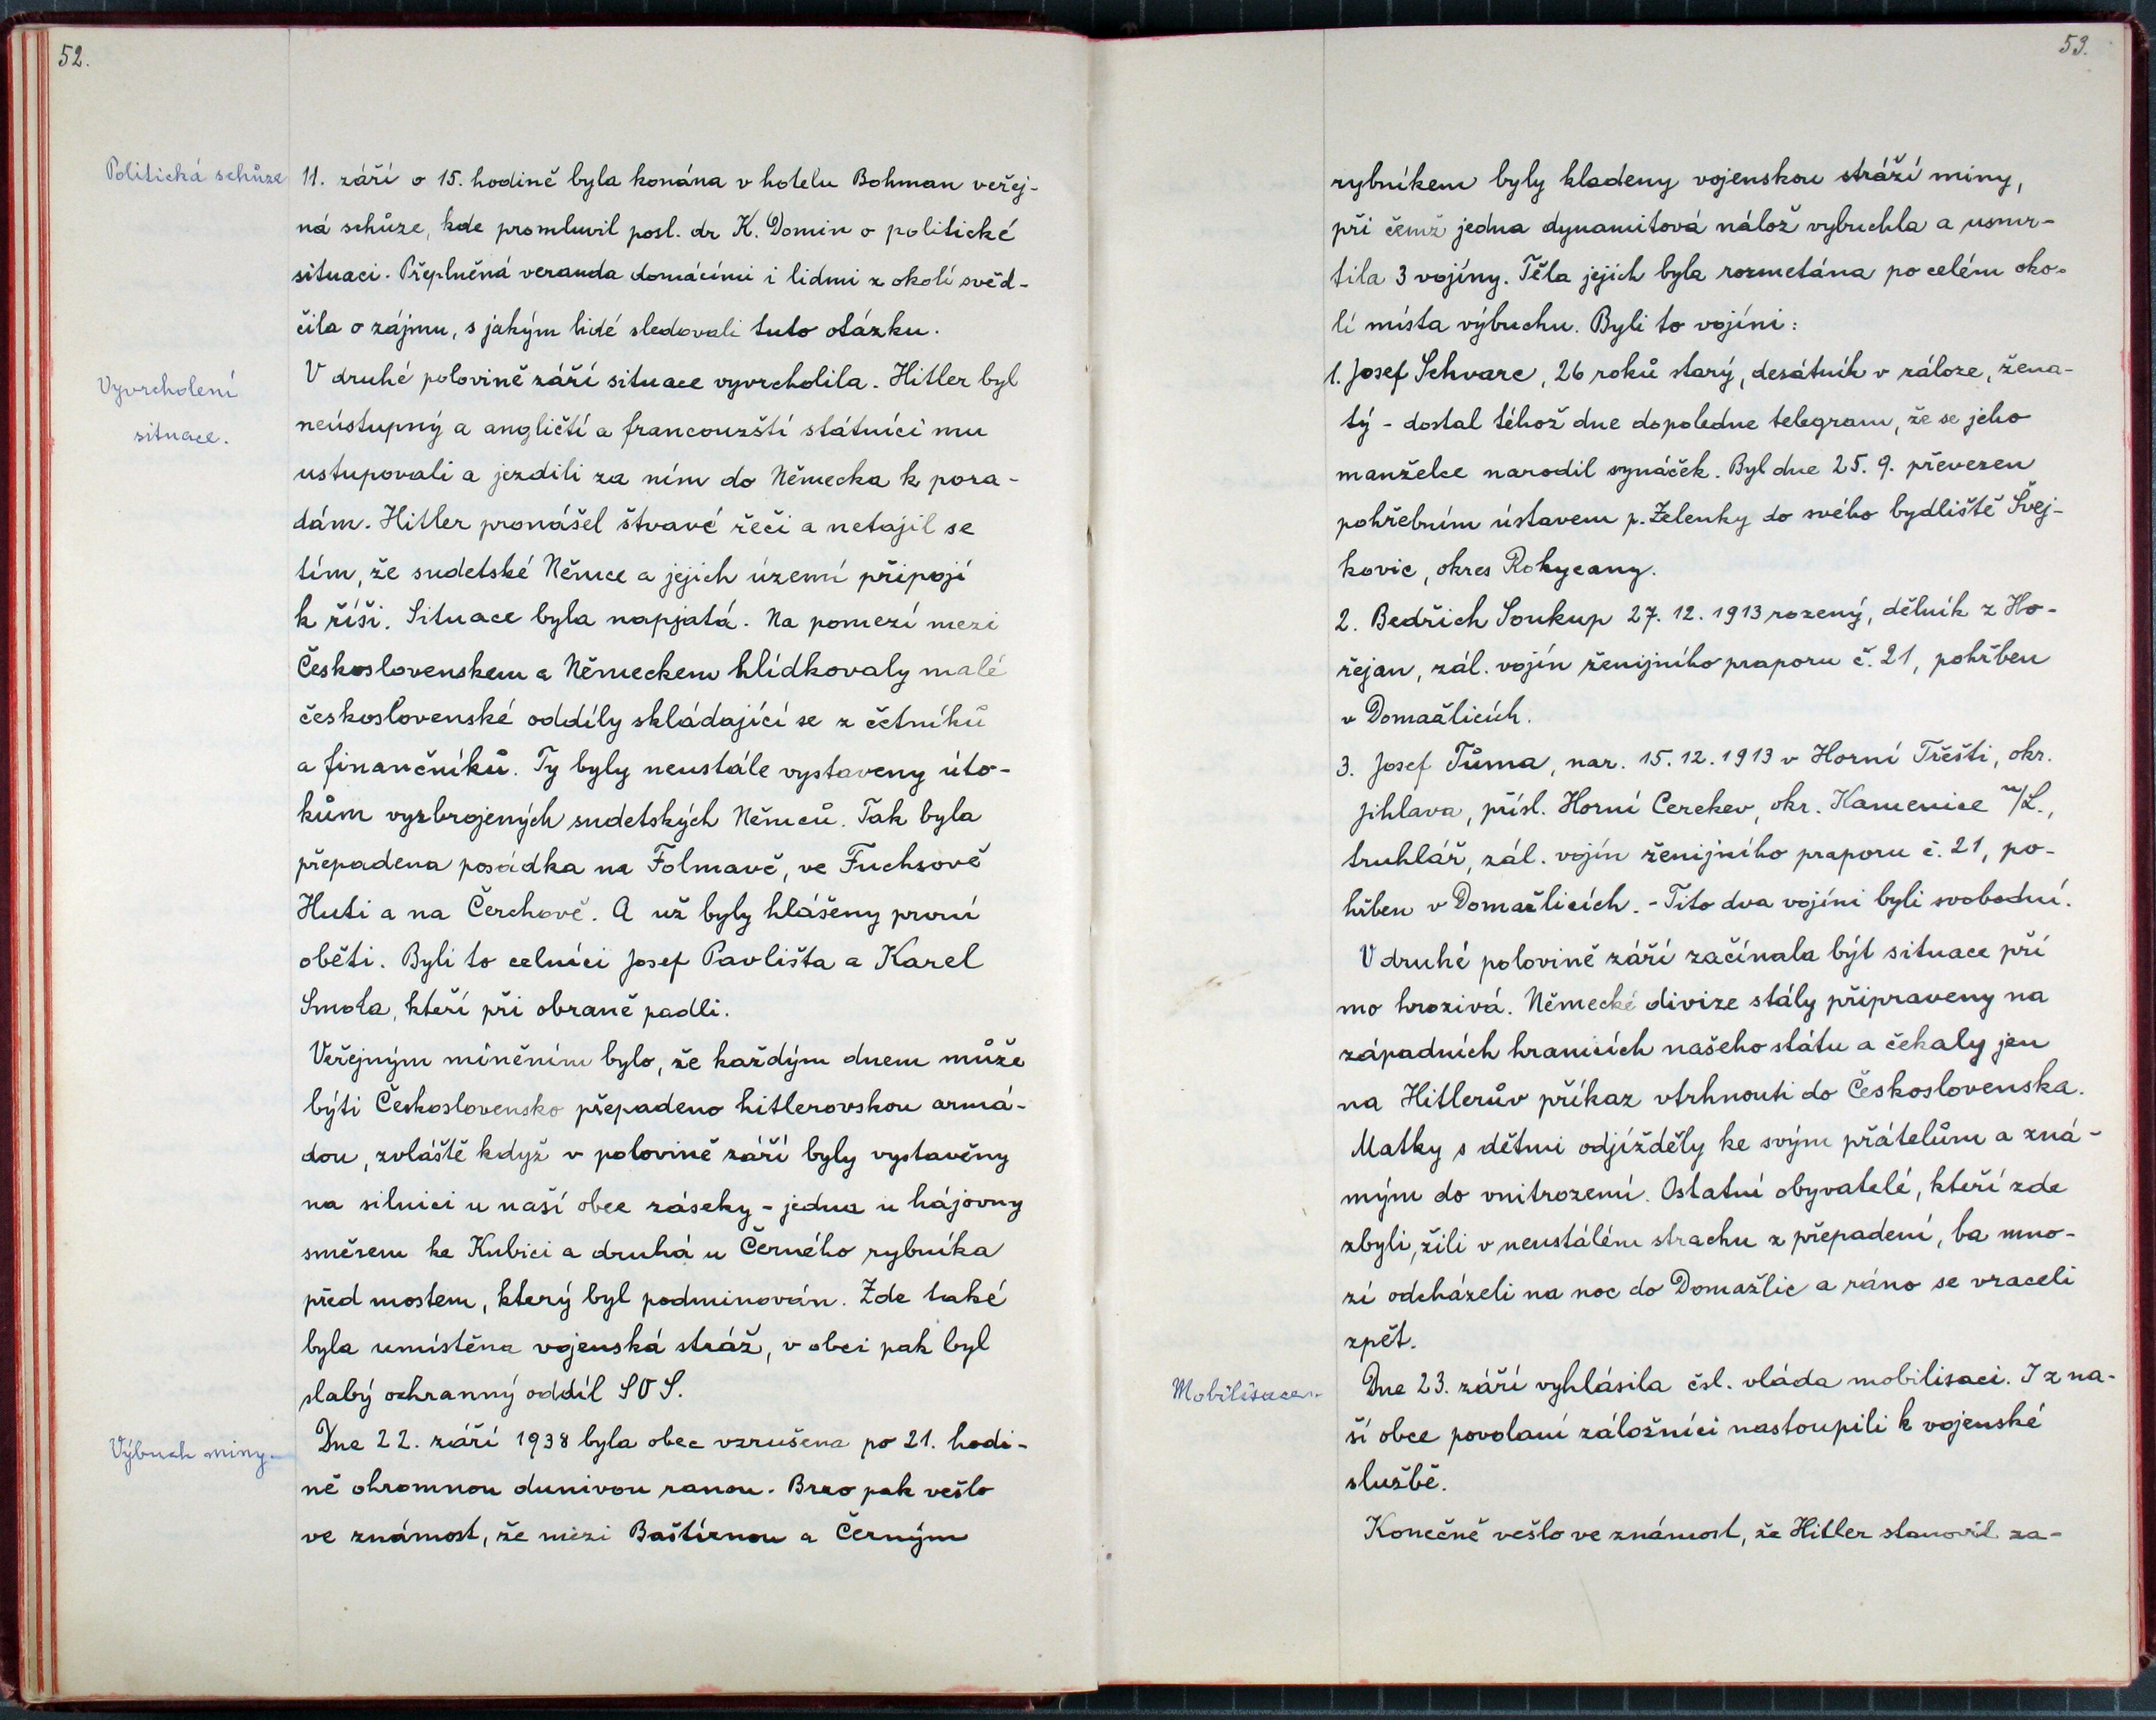 52.
Politická schůze
11. září o 15. hodině byla konána v hotelu Bohman veřej-
ná schůze, kde promluvil posl. dr K. Domin o politické
situaci. Přeplněná veranda domácími i lidmi z okolí svěd-
čila o zájmu, s jakým lidé sledovali tuto otázku.
Vyvrcholení
situace.
V druhé polovině září situace vyvrcholila. Hitler byl
neústupný a angličtí a francouzští státníci mu
ustupovali a jezdili za ním do Německa k pora-
dám. Hitler pronášel štvavé řeči a netajil se
tím, že sudetské Němce a jejich území připojí
k říši. Situace byla napjatá. Na pomezí mezi
Československem a Německem hlídkovaly malé
československé oddíly skládající se z četníků
a finančníků. Ty byly neustále vystaveny úto-
kům vyzbrojených sudetských Němců. Tak byla
přepadena posádka na Folmavě, ve Fuchsově
Huti a na Čerchově. A už byly hlášeny první
oběti. Byli to celníci Josef Pavlišta a Karel
Smola, kteří při obraně padli.
Veřejným míněním bylo, že každým dnem může
býti Československo přepadeno hitlerovskou armá-
dou, zvláště když v polovině září byly vystavěny
na silnici u naší obce záseky - jedna u hájovny
směrem ke Kubici a druhá u Černého rybníka
před mostem, který byl podminován. Zde také
byla umístěna vojenská stráž, v obci pak byl
slabý ochranný oddíl SOS.
Výbuch miny.
Dne 22. září 1938 byla obec vzrušena po 21. hodi-
ně ohromnou dunivou ranou. Brzo pak vešlo
ve známost, že mezi Baštírnou a Černým
53.
rybníkem byly kladeny vojenskou stráží miny,
při čemž jedna dynamitová nálož vybuchla a usmr-
tila 3 vojíny. Těla jejich byla rozmetána po celém oko-
lí místa výbuchu. Byli to vojíni:
1. Josef Schvarc, 26 roků starý, desátník v záloze, žena-
tý - dostal téhož dne dopoledne telegram, že se jeho
manželce narodil synáček. Byl dne 25. 9. převezen
pohřebním ústavem p. Zelenky do svého bydliště Švej-
kovic, okres Rokycany.
2. Bedřich Soukup 27. 12. 1913 rozený, dělník z Ho-
řejan, zál. vojín ženijního praporu č. 21, pohřben
v Domažlicích.
3. Josef Tůma, nar. 15. 12. 1913 v Horní Třešti, okr.
Jihlava, přísl. Horní Cerekev, okr. Kamenice n/L.,
truhlář, zál. vojín ženijního praporu č. 21, po-
hřben v Domažlicích. - Tito dva vojíni byli svobodní.
V druhé polovině září začínala být situace pří
mo hrozivá. Německé divize stály připraveny na
západních hranicích našeho státu a čekaly jen
na Hitlerův příkaz vtrhnouti do Československa.
Matky s dětmi odjížděly ke svým přátelům a zná-
mým do vnitrozemí. Ostatní obyvatelé, kteří zde
zbyli, žili v neustálém strachu z přepadení, ba mno-
zí odcházeli na noc do Domažlic a ráno se vraceli
zpět.
Mobilisace.
Dne 23. září vyhlásila čsl. vláda mobilisaci. I z na-
ší obce povolaní záložníci nastoupili k vojenské
službě.
Konečně vešlo ve známost, že Hitler stanovil za-